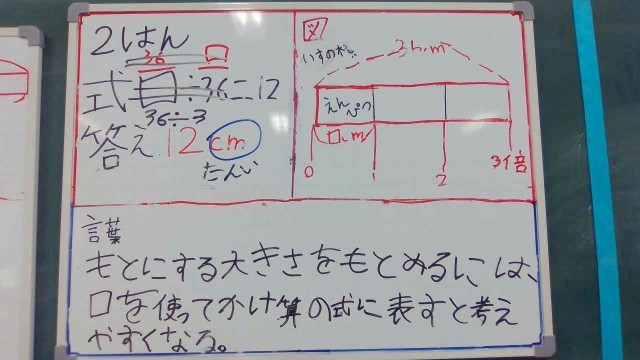 2はん
36
式 □÷36=12
36÷3
答え 12cm
たんい
図
いすの
えんぴつ
□cm
0 1 2 3倍
言葉
もとにする大きさをもとめるには、
口を使ってかけ算の式に表すと考え
やすくなる。